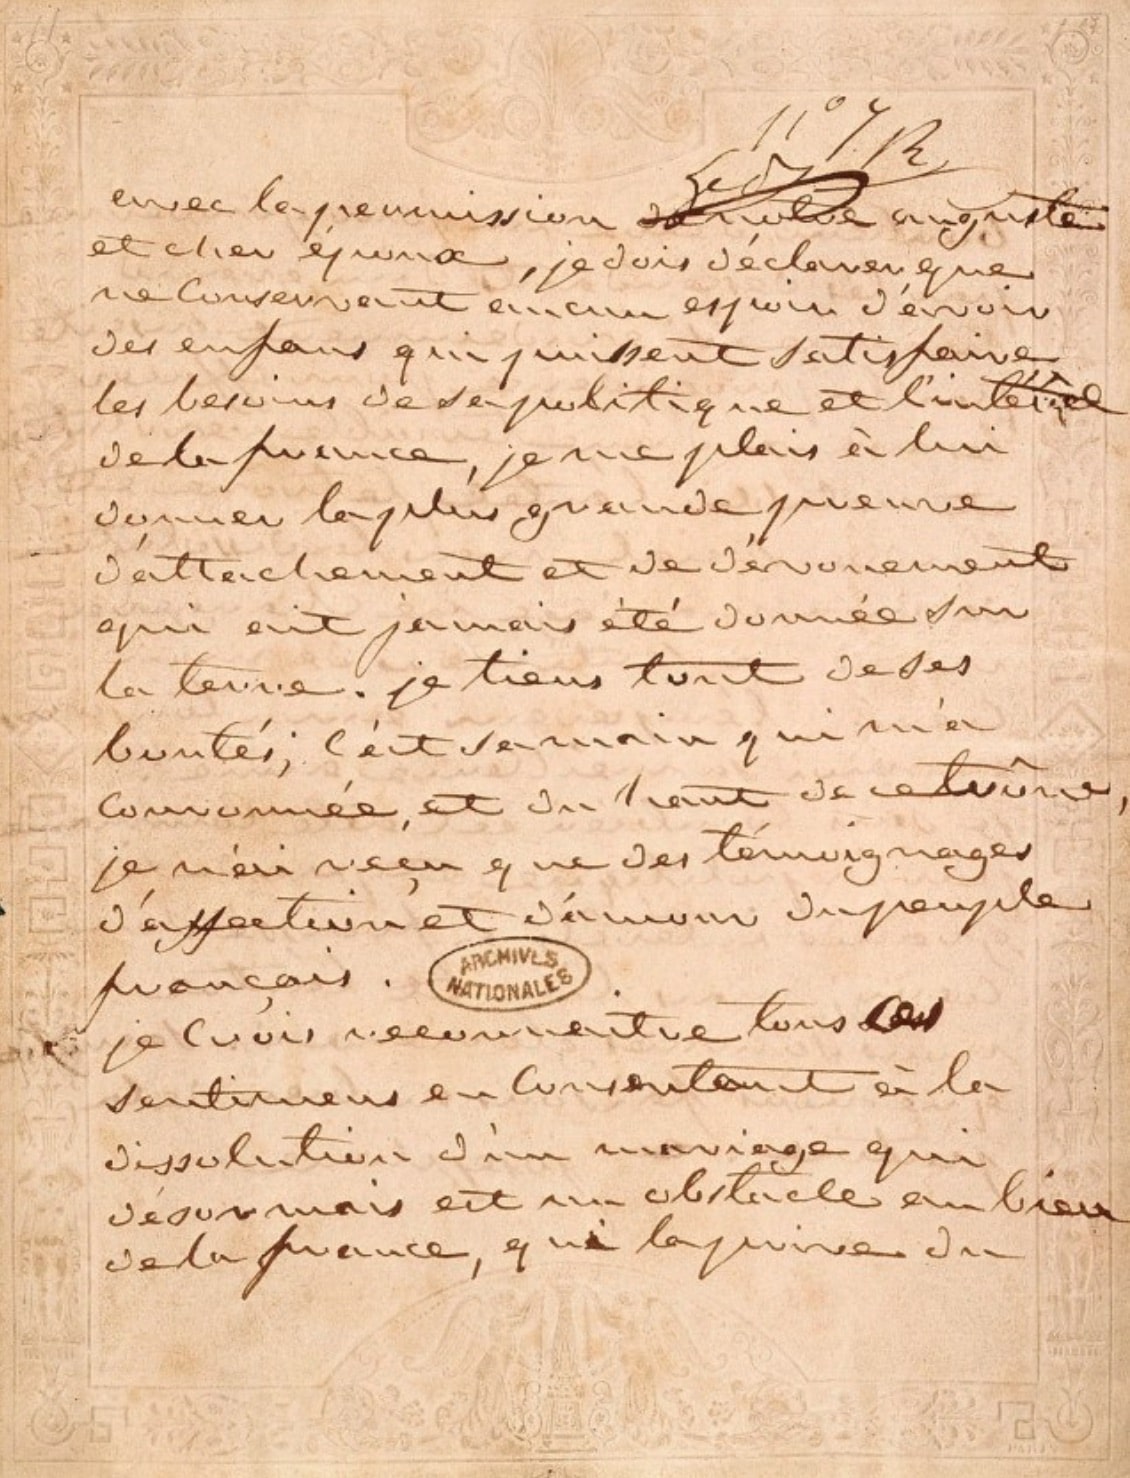 n° 7. R
avec la permission de notre auguste
et cher époux, je dois déclarer que
ne conservant aucun espoir d'avoir
des enfans qui puissent satisfaire
les besoins de sa politique et l'intérêt
de la france, je me plais à lui
donner la plus grande preuve
d'attachement et de dévouement
qui ait jamais été donnée sur
la terre. je tiens tout de ses
bontés; c'est sa main qui m'a
couronnée, et du haut de ce trône,
je n'ai reçu que des témoignages
d'affection et d'amour du peuple
français.
ARCHIVES
NATIONALES
je crois reconnaitre tous ces
sentimens en consentant à la
dissolution d'un mariage qui
désormais est un obstacle au bien
de la france, qui la prive du